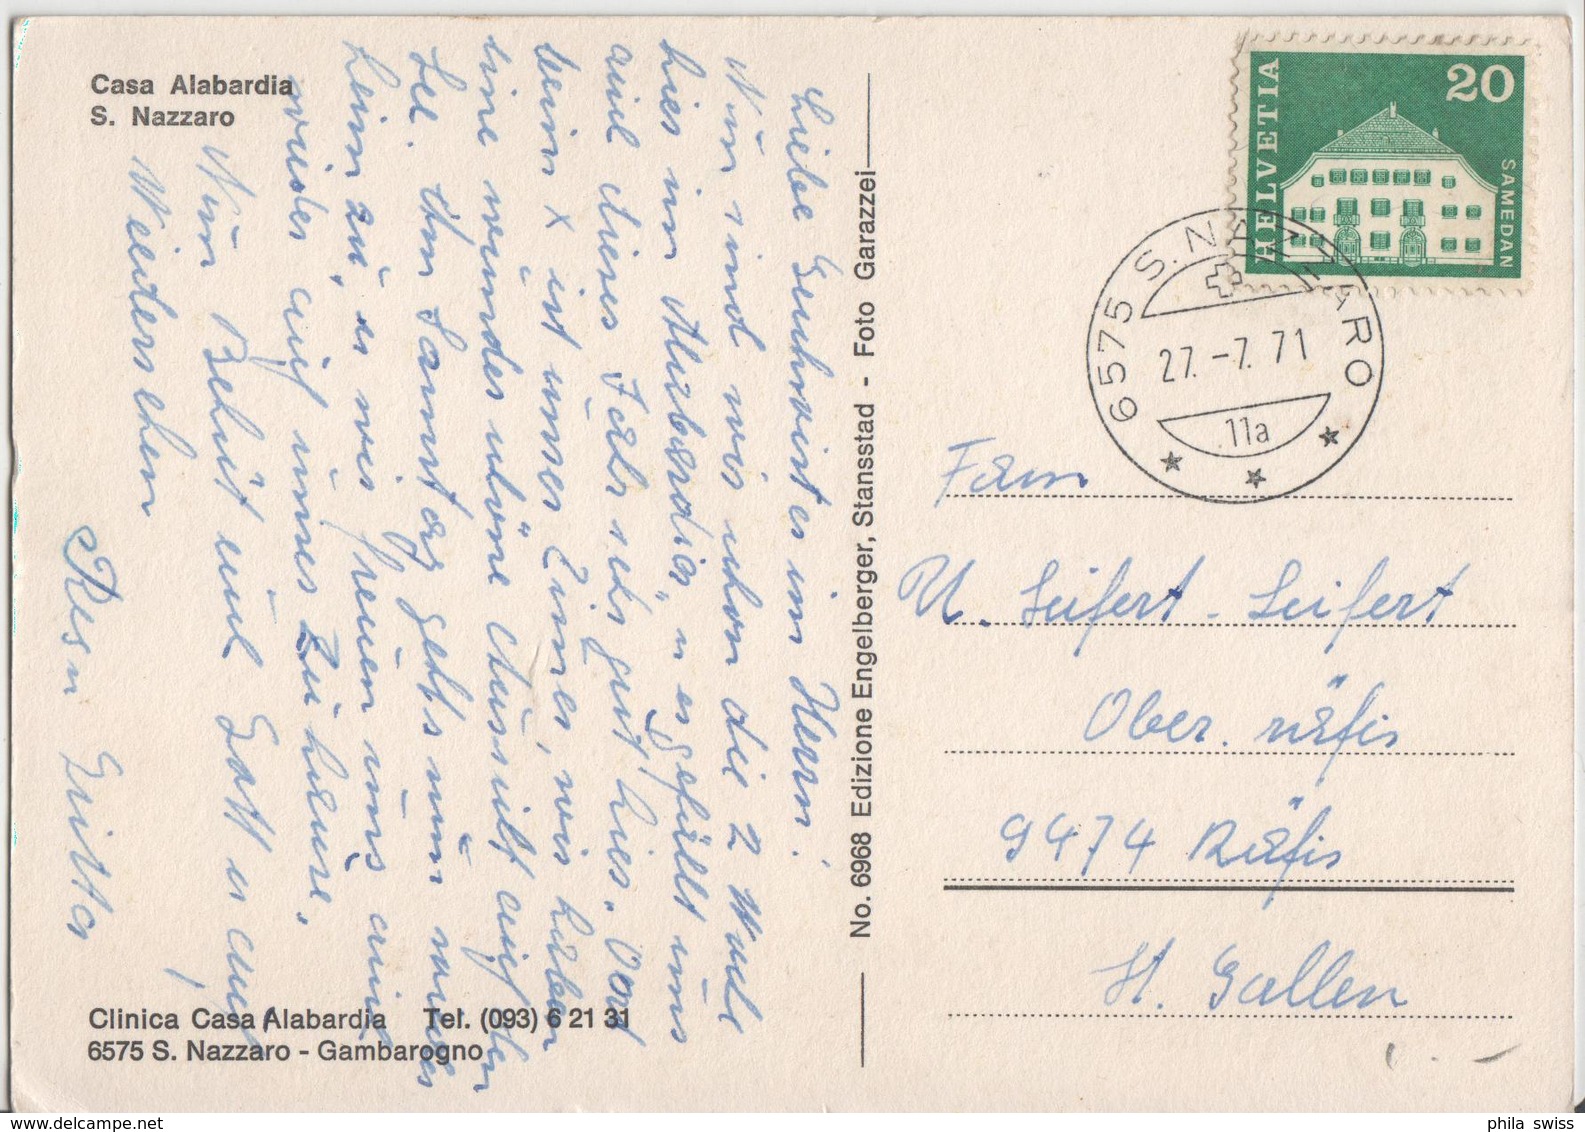 Casa Alabardia
S. Nazzaro
Liebe Geschwister im Herrn!
Nun sind wir schon die 2 Wuche
hier im Alabardia, u es gefällt uns
auch dieses Jahr sehr gut hier. Dort
beim X ist unser Zimer, wir haben
eine wunderschöne Aussicht auf den
See. Am Samstag gehts nun wieder
heim zu, es wir freuen uns auch
wieder auf unser Zuhause.
Nun Behüt euch Gott u auf
Wiedersehen
Resu Gritta
Clinica Casa Alabardia Tel. (093) 6 21 31
6575 S. Nazzaro - Gambarogno
No. 6968 Edizione Engelberger, Stansstad - Foto Garazzei
HELVETIA
20
SAMEDAN
6575 S. NAZZARO
27. -7. 71
11a
Fam
U. Seifert - Seifert
Ober. räfis
9474 Räfis
St. Gallen
phila swiss